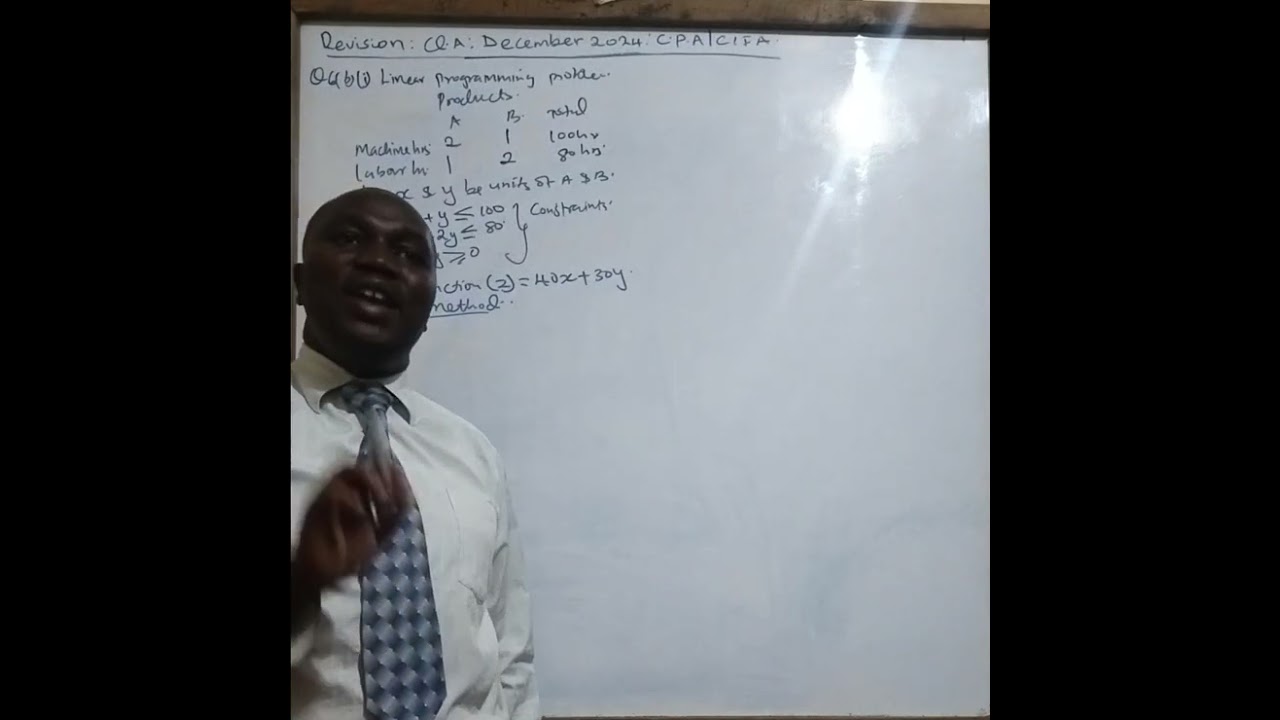 Revision: Q.A: December 2024: C.P.A/CIFA.
Q6(b)(i) Linear programming problem.
Products.
A B. total
Machine hrs: 2 1 100hr
Labour hr: 1 2 80 hrs.
x & y be units of A & B.
+ y ≤ 100
2y ≤ 80
y ≥ 0
} Constraints.
nction (z) = 40x + 30y.
method..